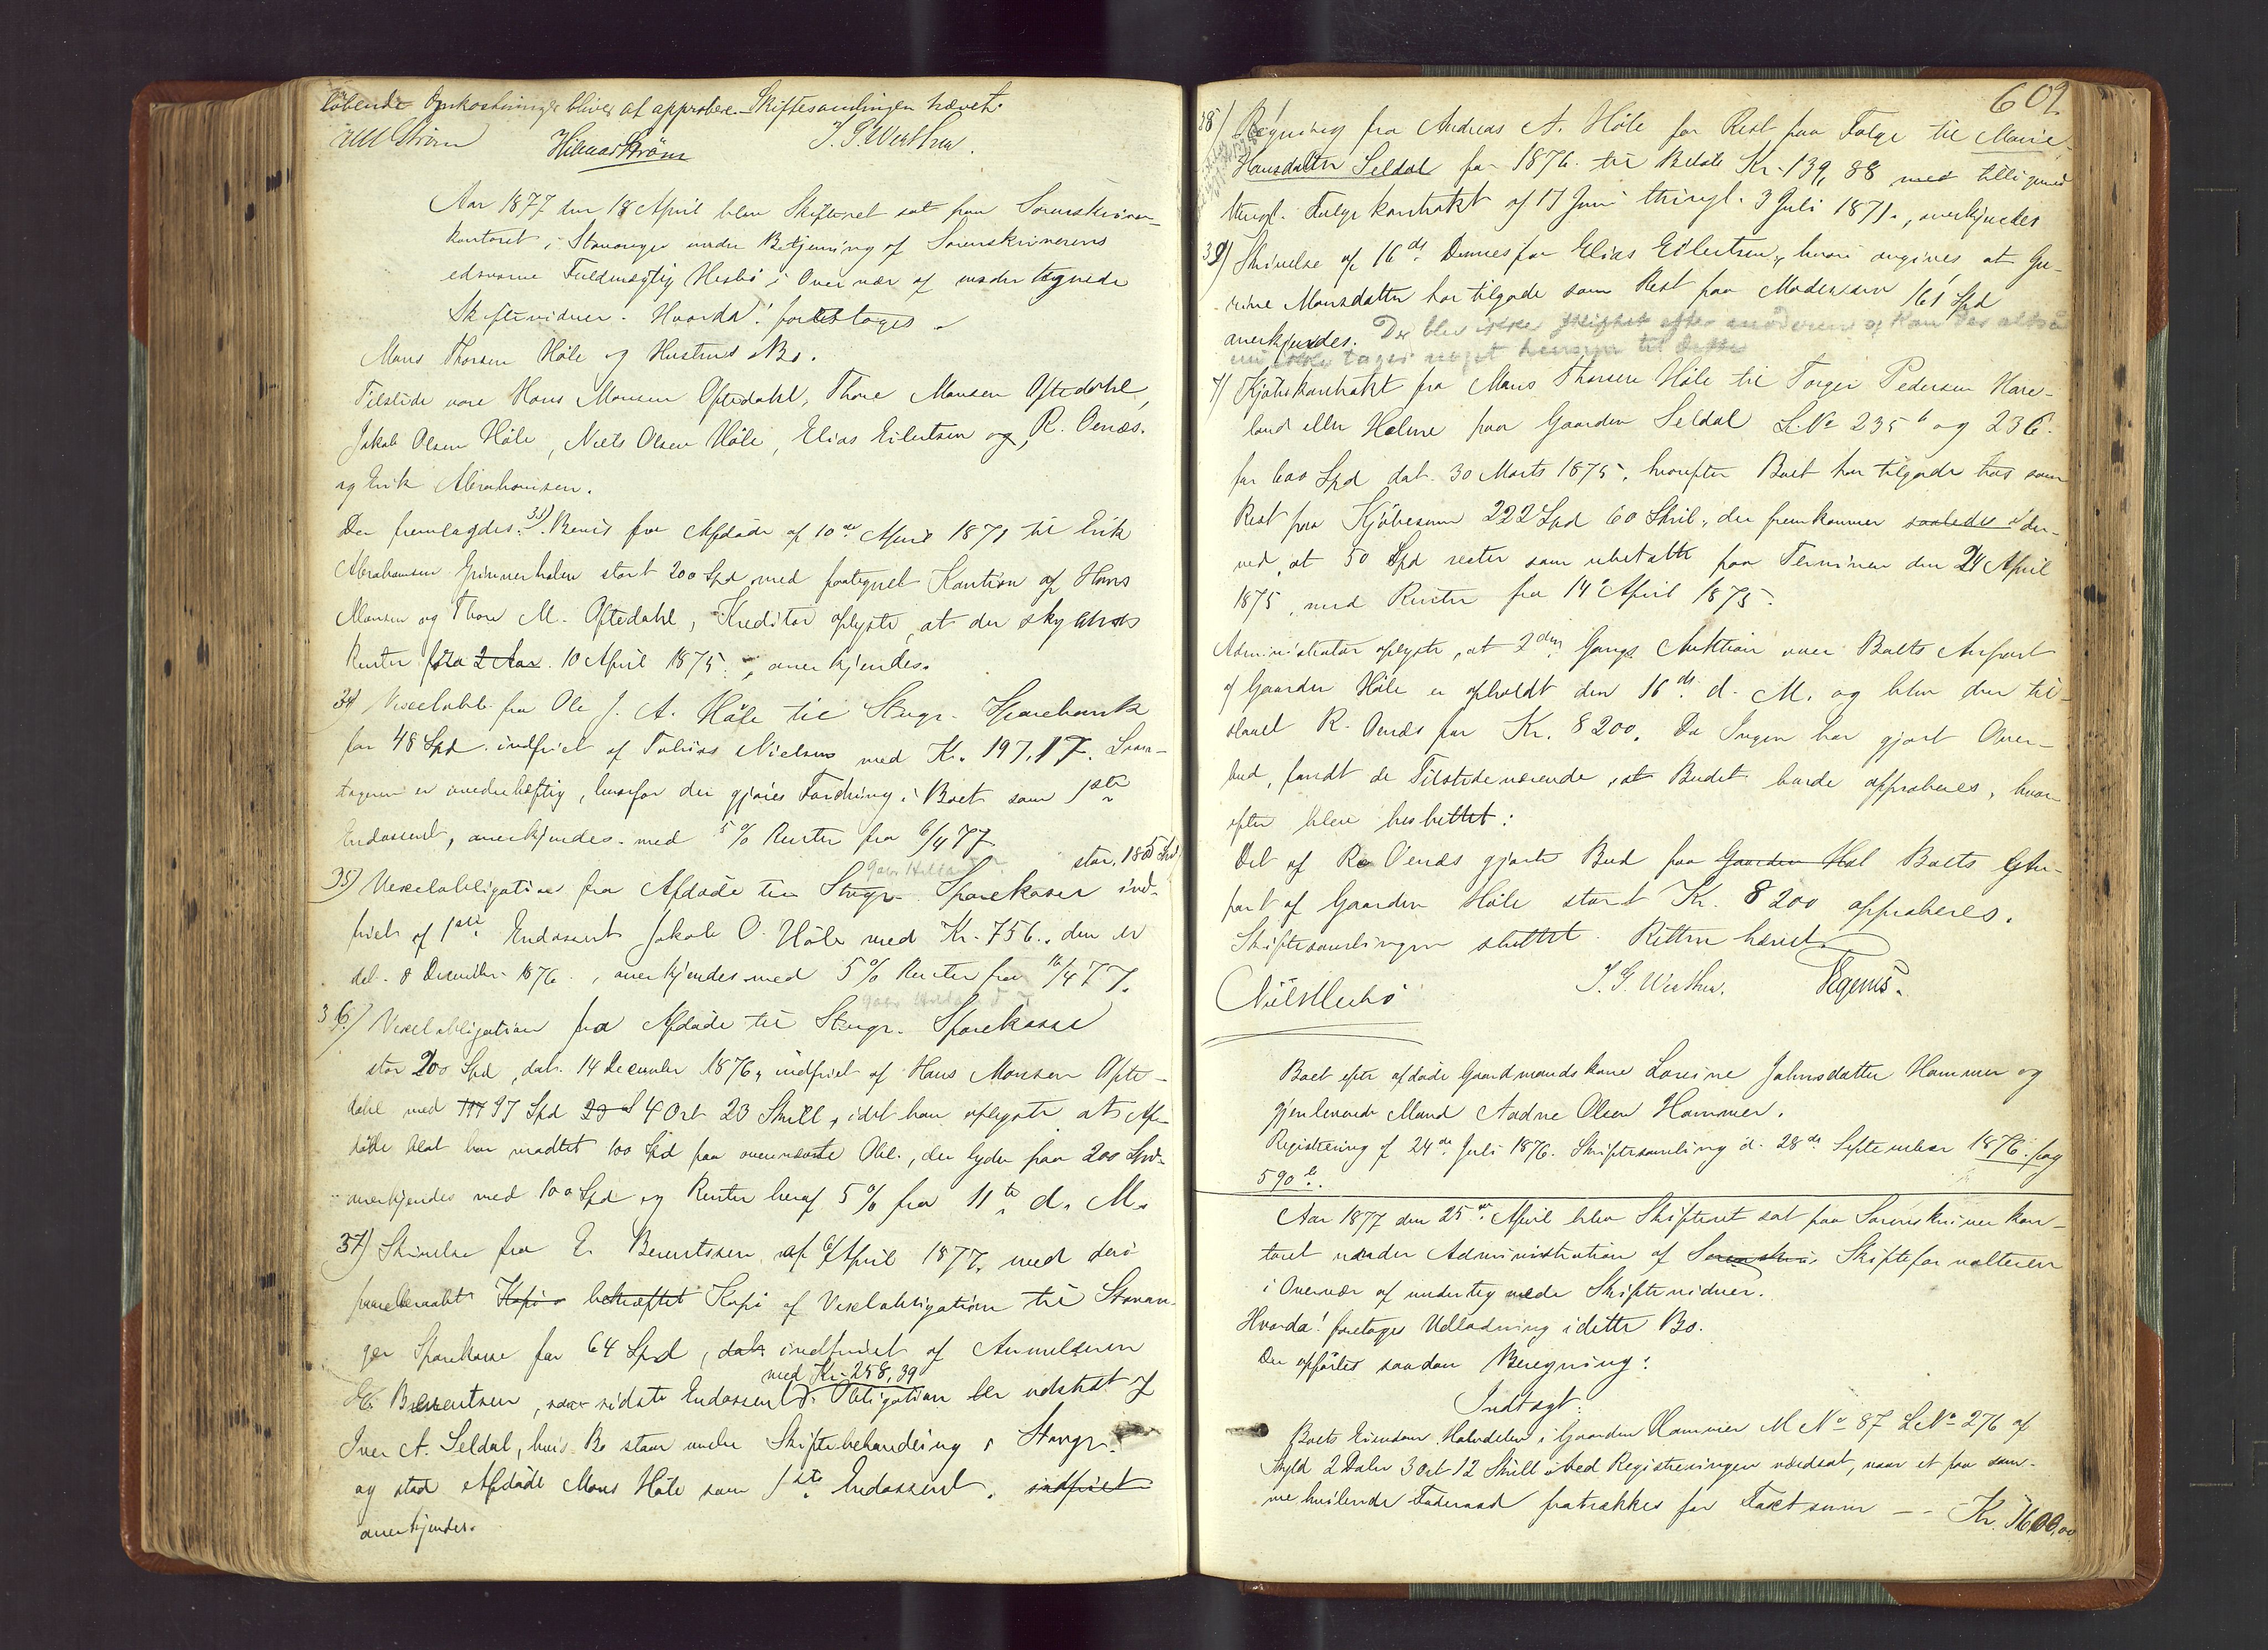 løbende Omkostninger bliver at approbere. Skiftesamlingen hævet.
Hilmar Strøm J. G. Werthun.
Aar 1877 den 18 April blev Skifteret sat paa Sorenskriver-
kontoret i Stavanger under Betjening af Sorenskriverens
edsvorne Fuldmægtig Hesbø i Overvær af undertegnede
Skiftevidner. Hvorda! foretoges
Mons Thorsen Høle og Hustrues Bo.
Tilstede vare Hans Monsen Oftedahl, Thore Monsen Oftedahl,
Jakob Olsen Høle, Niels Olsen Høle, Elias Eilertsen og R. Oenæs.
og Erik Abrahamsen.
Der fremlagdes: 33) Bevis fra Afdøde af 10de April 1871 til Erik
Abrahamsen stort 200 Spd med paategnet Kaution af Hans
Monsen og Thore M. Oftedahl, Kreditor oplyste, at der skyldes
Renter fra 2 Aar. 10 April 1875, anerkjendes.
34) Vexelobl. fra Ole J. A. Høle til Stvgr. Sparebank
for 48 Spd. indfriet af Tobias Nielsen med Kr. 197.17. Laan-
tageren er uvederhæftig, hvorfor der gjøres Fordring i Boet som 1ste
Endossent, anerkjendes med 5 % Renter fra 6/4 77
stor 185 Spd
35) Vexelobligation fra Afdøde til Stvgr. Sparekasse ind-
friet af 1ste Endossent Jakob O. Høle med Kr. 756., den er
dat. 8 December 1876., anerkjendes med 5 % Renter fra 16/4 77.
36) Vexelobligation fra Afdøde til Stvgr. Sparekasse
stor 200 Spd, dat. 14 December 1876, indfriet af Hans Monsen Ofte-
dahl med 97 Spd 4 Ort 23 Skill, idet han oplyste at Af-
døde blot har modtet 100 Spd paa ovennævnte Obl., der lyder paa 200 Spd.
anerkjendes med 100 Spd og Renter heraf 5 % fra 11te d. M.
37) Skrivelse fra E. Berentsen af 6 April 1877, med deri
paaberaabt Kopi bekræftet Kopi af Vexelobligation til Stavan-
ger Sparekasse for 64 Spd, dat. indfriet af Anmelderen
med Kr. 258,39
E. Berentsen, som sidste Endossent. Obligation er udstedt af
Iver A. Seldal, hvis Bo staar under Skiftebehandling i Stvgr.
og stod Afdøde Mons Høle som 1ste Endossent. indfriet
anerkjendes.
602
38) Regning fra Andreas A. Høle for Rest paa Folge til Marie
Hansdatter Seldal for 1876 til Beløb Kr. 139,88 med tilligemed
thingl. Folgekontrakt af 17 Juni thingl. 3 Juli 1871, anerkjendes
39) Skrivelse af 16de Dennes fra Elias Eilertsen, hvori angives at Gu-
rine Monsdatter har tilgode som Rest paa Mødrenearv 161 Spd
anerkjendes. Der blev ikke skiftet efter moderen og kan der altsaa
nu ikke tages noget hensyn til dette
7) Kjøbekontrakt fra Mons Thorsen Høle til Torger Pedersen Hare-
land eller Holme paa Gaarden Seldal L.No 235b og 236.
for 600 Spd dat. 30 Marts 1875, hvorefter Boet har tilgode hos som
Rest paa Kjøbesum 222 Spd 60 Skil., der fremkommer saaledes der-
ved, at 50 Spd rester som ubetalt paa Terminen den 24 April
1875, med Renter fra 14 April 1875.
Administrator oplyste, at 2den Gangs Auktion over Boets Anpart
af Gaarden Høle er afholdt den 16de d. M. og blev den til-
slaaet R. Oenæs for Kr. 8200. Da Ingen har gjort Over-
bud, fandt de Tilstedeværende, at Budet burde approberes, hvor-
efter blev besluttet:
Det af R. Oenæs gjorte Bud paa Gaarden Høl Boets An-
part af Gaarden Høle stort Kr. 8200 approberes.
Skiftesamlingen sluttet. Retten hævet.
J. G. Werthun.
Boet efter afdøde Gaardmandskone Lorine Johnsdatter Hammer og
gjenlevende Mand Aadne Olsen Hammer.
Registrering af 24de Juli 1876. Skiftesamling d. 28de September 1876. pag
590 b.
Aar 1877 den 25de April blev Skifteret sat paa Sorenskriverkon-
toret under Administration af Sorenskri Skifteforvalteren
i Overvær af undertegnede Skiftevidner.
Hvorda! foretoges Udlodning i dette Bo.
Der opførtes saadan Beregning:
Indtægt:
Boets Eiendom Halvdelen i Gaarden Hammer M No 87 L No 276 af
Skyld 2 Daler 3 Ort 12 Skill ved Registreringen værdsat, naar et paa sam-
me hvilende Føderaad fratrækkes for Taxtsum -- Kr. 1600,00